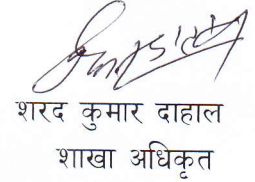 शरद कुमार दाहाल
शाखा अधिकृत